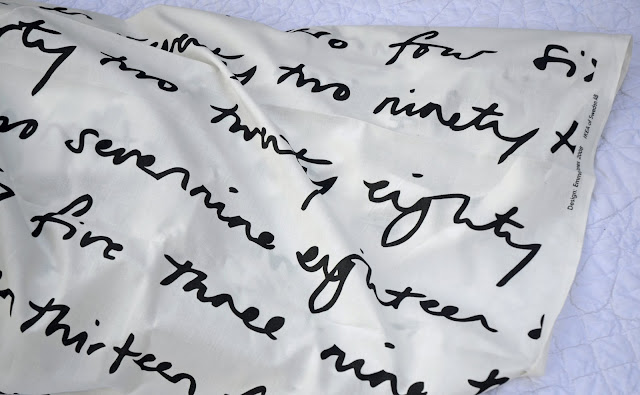 two four si
two ninety t
rty two twenty eighty
wo seven nine eighteen
y five three nine t
n thirteen
Design: Emma 2008 IKEA of Sweden AB